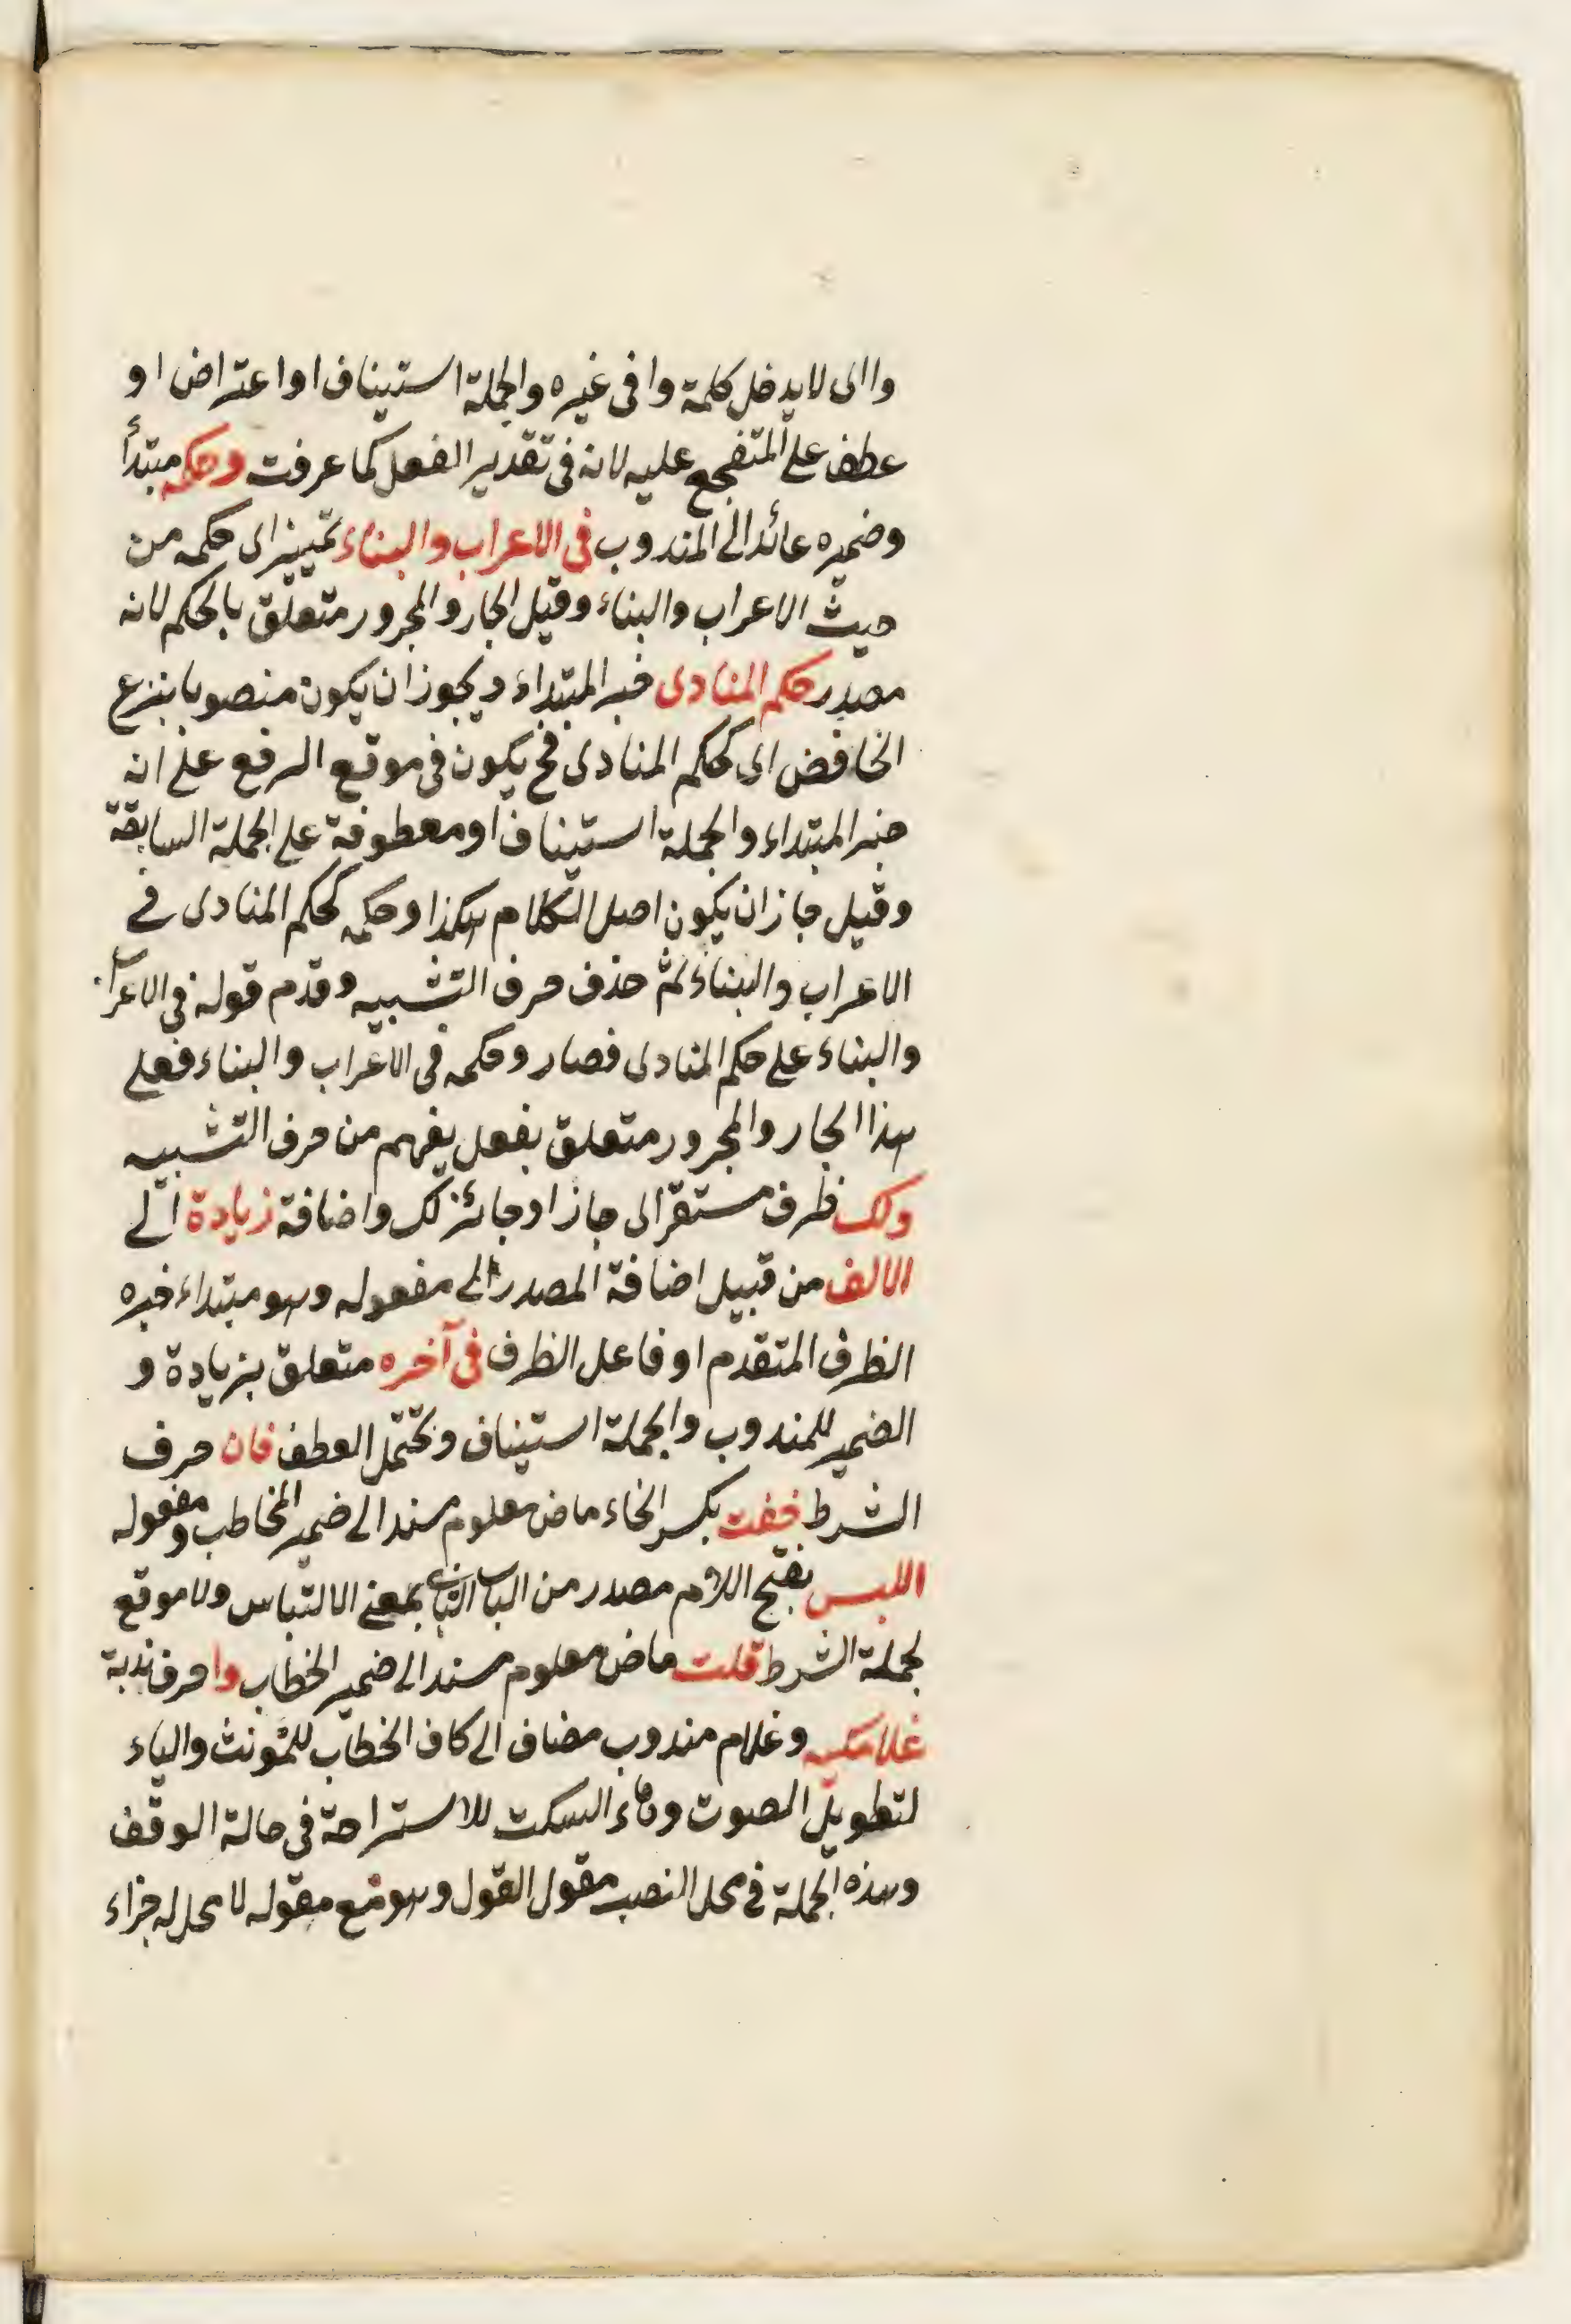 واای لا یدخل کلمة وا فی غیره والجملة استیناف او اعتراض او
عطف علی المتفجع علیه لانه فی تقدیر الفعل کما عرفت وحکمه مبتدأ
وضمیره عائد الی المندوب فی الاعراب والبناء تمییز ای حکمه من
حیث الاعراب والبناء وقیل الجار والمجرور متعلق بالحکم لانه
مصدر حکم المنادی خبر المبتداء ویجوز ان یکون منصوبا بنزع
الخافض ای کحکم المنادی فح یکون فی موقع الرفع علی انه
خبر المبتداء والجملة استیناف او معطوفة علی الجملة السابقة
وقیل جاز ان یکون اصل الکلام هکذا وحکمه کحکم المنادی فی
الاعراب والبناء ثم حذف حرف التشبیه وقدم قوله فی الاعراب
والبناء علی حکم المنادی فصار وحکمه فی الاعراب والبناء فعلی
هذا الجار والمجرور متعلق بفعل یفهم من حرف التشبیه
ولک ظرف مستقر ای جاز او جائز لک واضافة زیادة الی
الالف من قبیل اضافة المصدر الی مفعوله وهو مبتداء خبره
الظرف المتقدم او فاعل الظرف فی آخره متعلق بزیادة و
الضمیر للمندوب والجملة استیناف وتحتمل العطف فان حرف
الشرط خفت بکسر الخاء ماض معلوم مسند الی ضمیر المخاطب ومفعوله
اللبس بفتح اللام مصدر من الباب الثانی بمعنی الالتباس ولا موقع
لجملة الشرط قلت ماض معلوم مسند الی ضمیر الخطاب وا حرف ندبة
غلامکیه وغلام مندوب مضاف الی کاف الخطاب للمؤنث والیاء
لتطویل الصوت وهاء السکت للاستراحة فی حالة الوقف
وهذه الجملة فی محل النصب مقول القول وهو مع مقوله لا محل له جزاء